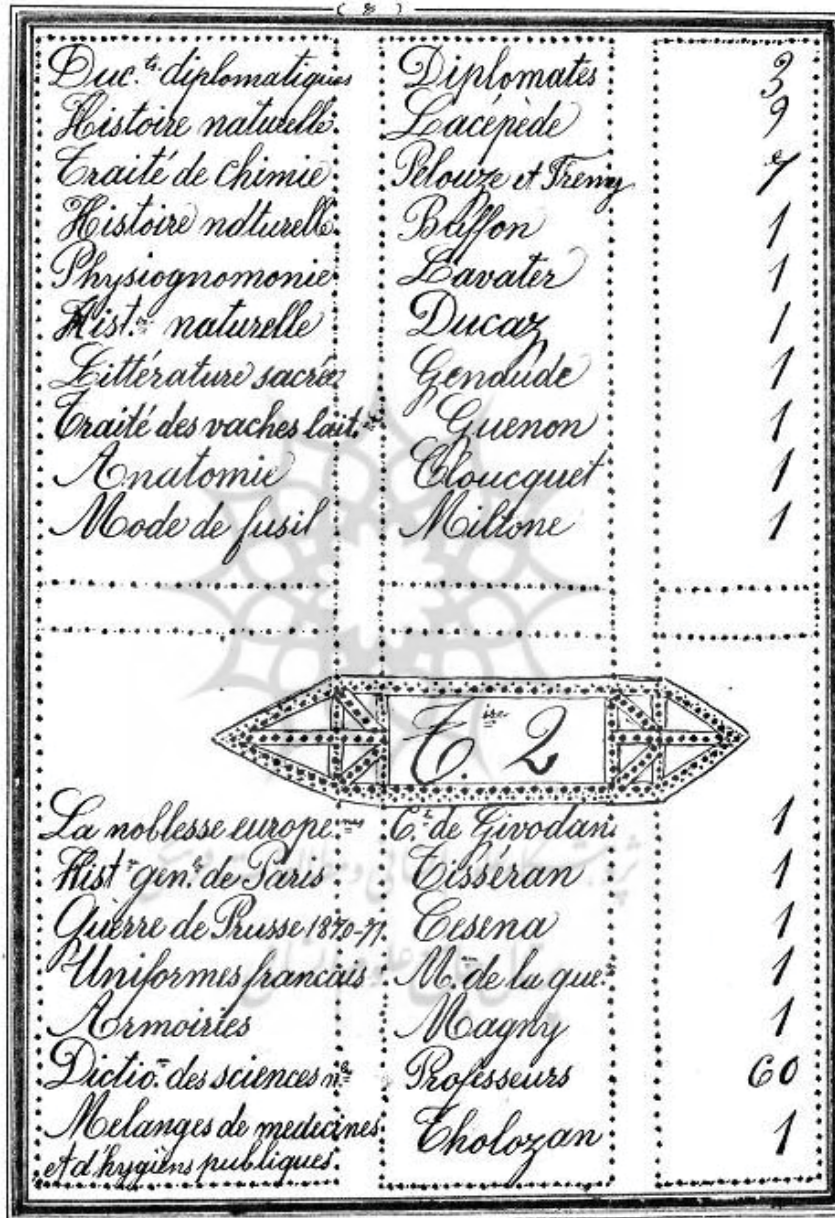 ( 8 )
Duc.ts diplomatiques Diplomates 3
Histoire naturelle Lacépède 9
Traité de chimie Pelouze et Fremy 7
Histoire naturelle Buffon 1
Physiognomonie Lavater 1
Hist.re naturelle Ducaz 1
Littérature sacrée Genaude 1
Traité des vaches lait. Guenon 1
Anatomie Cloucquet 1
Mode de fusil Miltone 1
T. 2
La noblesse europe. C.te de Givodan 1
Hist.re gen.le de Paris Tisséran 1
Guerre de Prusse 1870-71. Cesena 1
Uniformes francais M. de la gue. 1
Armoiries Magny 1
Dictio.re des sciences Professeurs 60
Melanges de medecines Tholozan 1
et d'hygiens publiques